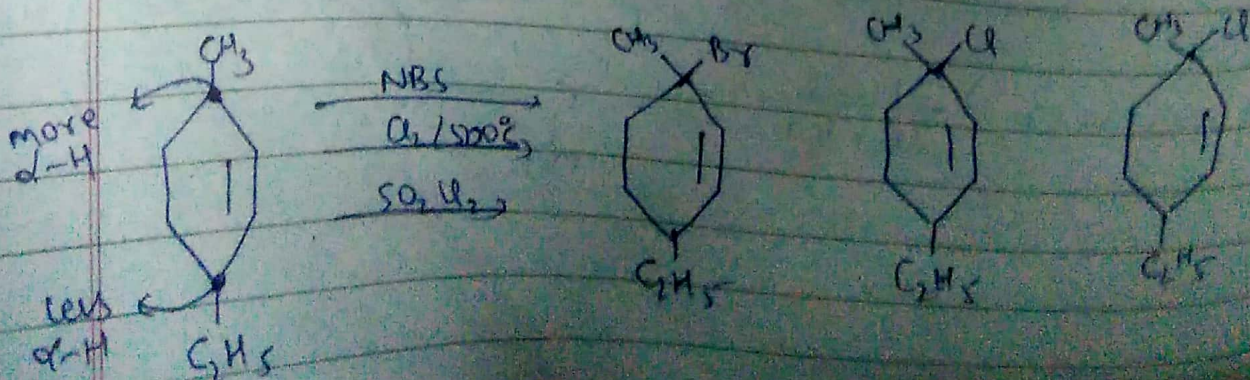 CH3
more
α-H
less
α-H
C2H5
NBS
Cl2/500°C
SO2Cl2
CH3 Br
C2H5
CH3 Cl
C2H5
CH3 Cl
C2H5